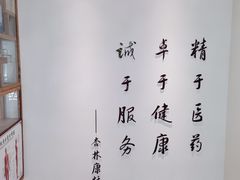 精于医药
卓于健康
誠于服务
——杏林康